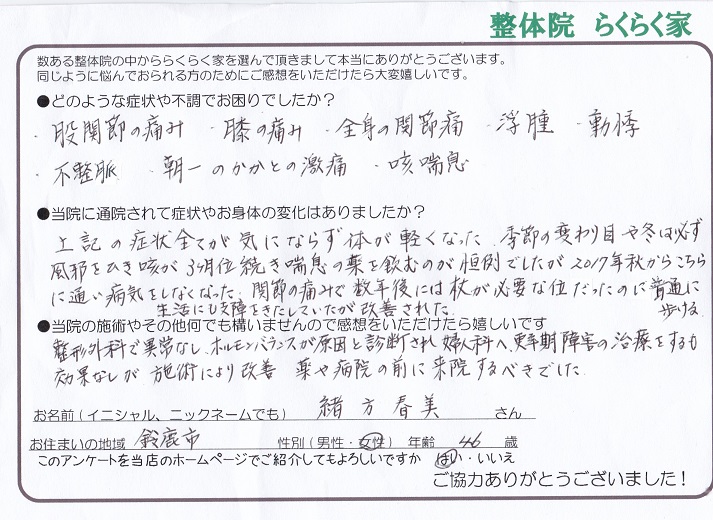 整体院 らくらく家
数ある整体院の中かららくらく家を選んで頂きまして本当にありがとうございます。
同じように悩んでおられる方のためにご感想をいただけたら大変嬉しいです。
●どのような症状や不調でお困りでしたか？
・股関節の痛み ・膝の痛み ・全身の関節痛 ・浮腫 ・動悸
・不整脈 ・朝一のかかとの激痛 ・咳喘息
●当院に通院されて症状やお身体の変化はありましたか？
上記の症状全てが気にならず体が軽くなった。季節の変わり目や冬は必ず
風邪をひき咳が3ヶ月位続き喘息の薬を飲むのが恒例でしたが2017年秋からこちら
に通い病気をしなくなった。関節の痛みで数年後には杖が必要な位だったのに普通に
歩ける
生活にも支障をきたしていたが改善された。
●当院の施術やその他何でも構いませんので感想をいただけたら嬉しいです
整形外科で異常なし、ホルモンバランスが原因と診断され婦人科へ、更年期障害の治療をするも
効果なしが 施術により改善 薬や病院の前に来院するべきでした。
お名前（イニシャル、ニックネームでも） 緒方春美 さん
お住まいの地域 鈴鹿市 性別（男性・女性） 年齢 46 歳
このアンケートを当店のホームページでご紹介してもよろしいですか はい・いいえ
ご協力ありがとうございました！